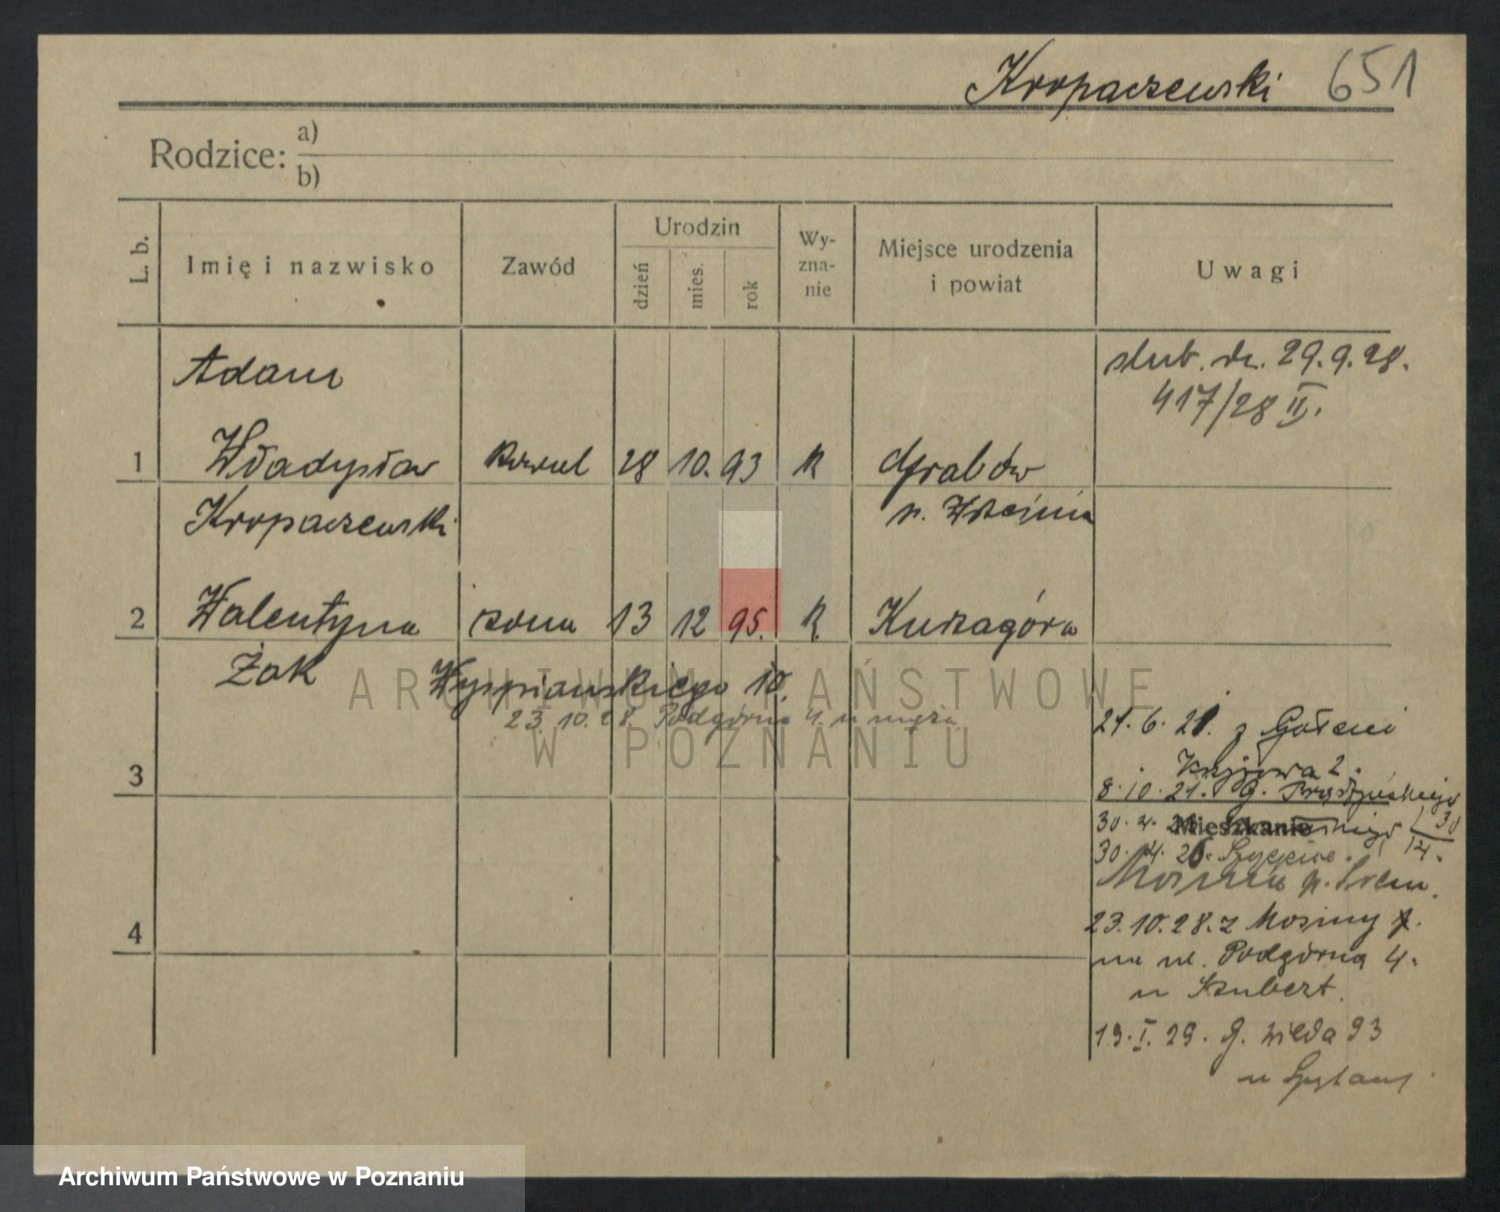 Kropaczewski 651
Rodzice: a)
b)
L. b.
Imię i nazwisko
Zawód
Urodzin
dzień
mies.
rok
Wy-
zna-
nie
Miejsce urodzenia
i powiat
Uwagi
Adam
ślub. dn. 29.9.28.
417/28 II.
1 Władysław 28 10. 93 k Grabów
Kropaczewski p. Września
2 Walentyna żona 13 12 95. k. Kurzagóra
Żak Wyspiańskiego 10.
23.10.28. Podgórna 4. u męża
ARCHIWUM PAŃSTWOWE
W POZNANIU
21.6.21. z
2.
3
8.10.21. G.
30
Mieszkanie
30. 4. 26.
14.
p. Śrem.
4
23.10.28. z Mosiny
na ul. Podgórna 4.
u Szubert.
19.I.29. G. Wilda 93
u
Archiwum Państwowe w Poznaniu